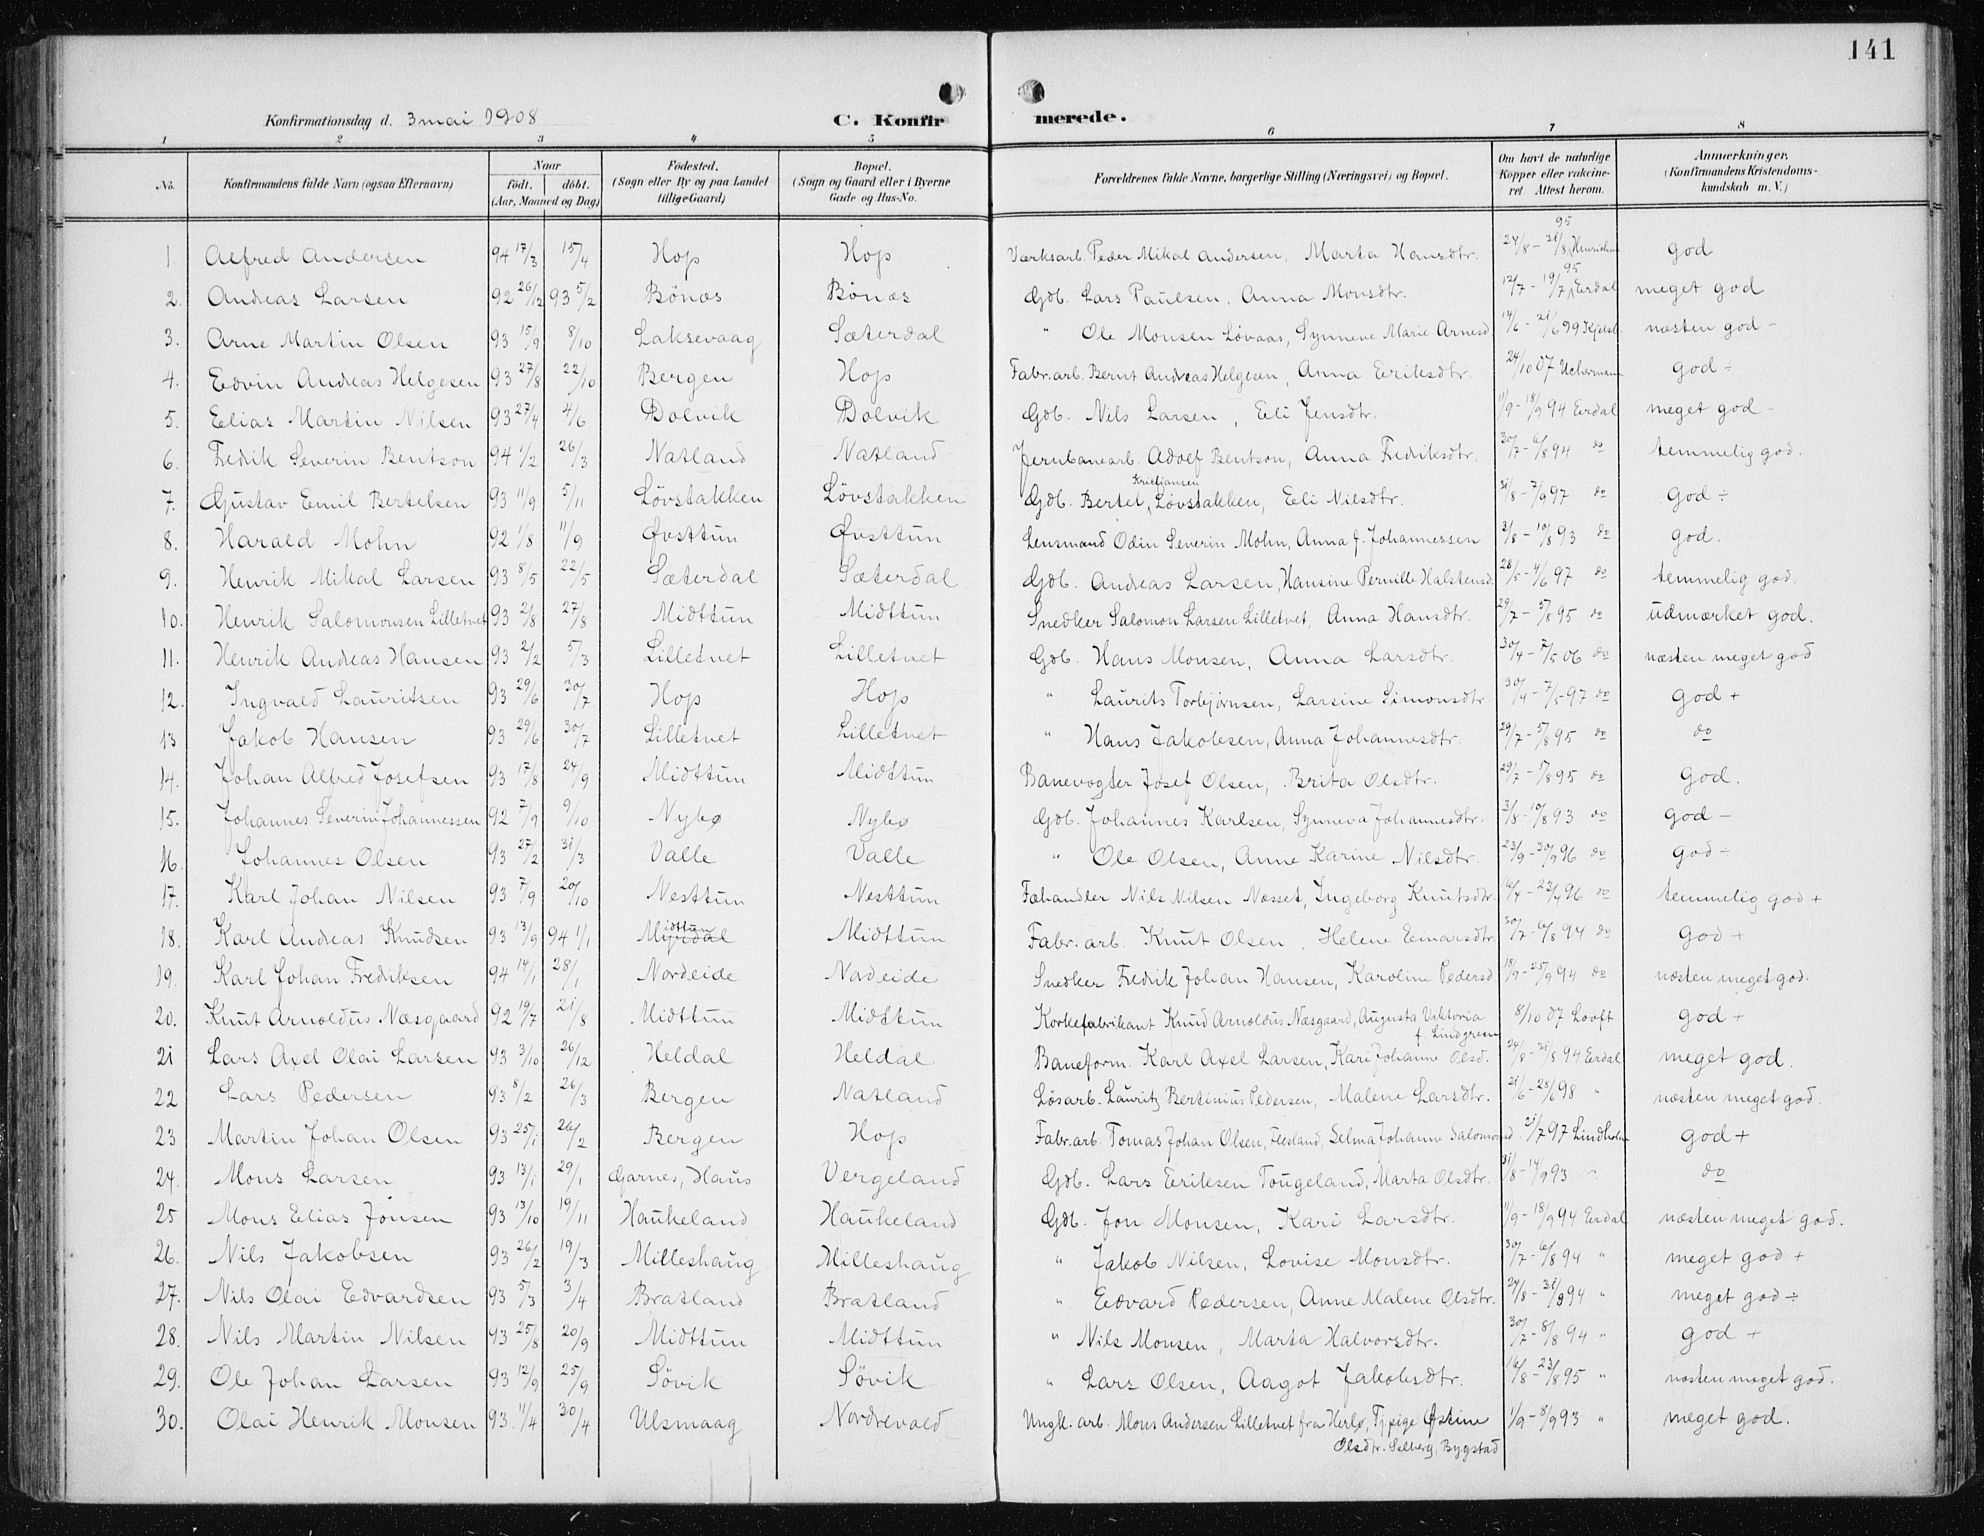 141
Konfirmationsdag d. 3 mai 1908 C. Konfirmerede.
1 2 3 4 5 6 7 8
No. Konfirmandens fulde Navn (ogsaa Efternavn) Naar født. døbt. (Aar, Maaned og Dag) Fødested. (Sogn eller By og paa Landet tillige Gaard) Bopæl. (Sogn og Gaard eller i Byerne Gade og Hus-No. Forældrenes fulde Navne, borgerlige Stilling (Næringsvei) og Bopæl. Om havt de naturlige Kopper eller vakcineret. Attest herom. Anmærkninger. (Konfirmandens Kristendomskundskab m. V.)
1 Alfred Andersen 94 17/3 15/4 Hop Hop Værksarb. Peder Mikal Andersen, Marta Hansdtr. 24/8 - 31/8 95 god
2. Andreas Larsen 92 26/12 93 5/2 Bönæs Bönæs Gdb. Lars Paulsen, Anna Monsdtr. 12/7 - 19/7 95 Eerdal meget god
3. Arne Martin Olsen 93 15/9 8/10 Laksevaag Sæterdal " Ole Monsen Løvaas, Synneve Marie Arnesd. 14/6 - 21/6 99 næsten god -
4. Edvin Andreas Helgesen 93 27/8 22/10 Bergen Hop Fabr. arb. Bernt Andreas Helgesen, Anna Eriksdtr. 24/10 07 Uchermann god ÷
5. Elias Martin Nilsen 93 27/4 4/6 Dolvik Dolvik Gdb. Nils Larsen, Eli Jensdtr. 11/9 - 18/9 94 Eerdal meget god -
6. Fredik Severin Bentson 94 1/2 26/3 Natland Natland Jernbanearb. Adolf Bentson, Anna Frediksdtr. 30/7 - 6/8 94 do temmelig god.
7. Gustav Emil Bertelsen 93 11/9 5/11 Lövstakken Lövstakken Gdb. Bertel Kristjansen Lövstakken, Eli Nilsdtr. 31/8 - 7/9 97 do god ÷
8. Harald Mohn 92 1/8 11/9 Øvsttun Øvsttun Lensmand Odin Severin Mohn, Anna f. Johannessen 3/8 - 10/8 93 do god.
9. Henrik Mikal Larsen 93 8/5 22/5 Sæterdal Sæterdal Gdb. Andreas Larsen, Hansine Pernille Halstensd. 28/5 - 4/6 97 do temmelig god.
10. Henrik Salomonsen Lilletvet 93 2/8 27/8 Midttun Midttun Snedker Salomon Larsen Lilletvet, Anna Hansdtr. 29/7 - 5/8 95 do udmærket god.
11. Henrik Andreas Hansen 93 2/2 5/3 Lilletvet Lilletvet Gdb. Hans Monsen, Anna Larsdtr. 30/4 - 7/5 06 do næsten meget god
12. Ingvald Lauritsen 93 29/6 30/7 Hop Hop " Laurits Torbjørnsen, Larsine Simonsdtr 30/4 - 7/5 97 do god +
13 Jakob Hansen 93 29/6 30/7 Lilletvet Lilletvet " Hans Jakobsen, Anna Johannesdtr. 29/7 - 5/8 95 do do
14. Johan Alfred Josefsen 93 17/8 24/9 Midttun Midttun Banevogter Josef Olsen, Brita Olsdtr. 29/7 - 5/8 95 do god.
15. Johannes Severin Johannessen 92 7/9 9/10 Nybø Nybø Gdb. Johannes Karlsen, Synneva Johannesdtr. 3/8 - 10/8 93 do god -
16. Johannes Olsen 93 27/2 31/3 Valle Valle " Ole Olsen, Anne Karine Nilsdtr. 23/9 - 30/9 96 do god ÷
17. Karl Johan Nilsen 93 7/9 20/10 Nesttun Nesttun Fæhandler Nils Nilsen Næsset, Ingeborg Knutsdtr. 16/4 - 23/4 96 do temmelig god +
18. Karl Andreas Knudsen 93 13/9 94 1/1 Midttun Midttun Fabr. arb. Knut Olsen, Helene Einarsdtr. 30/7 - 6/8 94 do god +
19. Karl Johan Frediksen 94 14/1 28/1 Nordeide Nadeide Snedker Fredik Johan Hansen, Karoline Pedersd 18/9 - 25/9 94 do næsten meget god.
20. Knut Arnoldus Næsgaard 92 19/7 21/8 Midttun Midttun Korkefabrikant Knud Arnoldus Næsgaard, Augusta Viktoria f. Lindgreen 8/10 07 Looft god +
21 Lars Axel Olai Larsen 93 3/10 26/12 Heldal Heldal Baneform. Karl Axel Larsen, Kari Johanne Olsd. 24/8 - 31/8 94 Eerdal meget god.
22 Lars Pedersen 93 8/2 26/3 Bergen Natland Løsarb. Lauritz Bertinius Pedersen, Malene Larsdtr. 21/6 - 28/6 98 " næsten meget god.
23 Martin Johan Olsen 93 25/1 26/2 Bergen Hop Fabr. arb. Tomas Johan Olsen, Flesland, Selma Johanne Salomonsd. 21/7 97 Lindholm god +
24. Mons Larsen 93 13/1 29/1 Garnes, Haus Vergeland Gdb. Lars Eriksen Tougeland, Marta Olsdtr. 31/8 - 14/9 93 " do
25 Mons Elias Jonsen 93 13/10 19/11 Haukeland Haukeland Gdb. Jon Monsen, Kari Larsdtr. 11/9 - 18/9 94 Eerdal næsten meget god.
26. Nils Jakobsen 93 26/2 19/3 Milleshaug Milleshaug " Jakob Nilsen, Lovise Monsdtr. 30/7 - 6/8 94 " meget god +
27. Nils Olai Edvardsen 93 5/3 3/4 Bratland Bratland " Edvard Pedersen, Anne Malene Olsdtr. 24/8 - 31/8 94 " meget god ÷
28. Nils Martin Nilsen 93 25/8 20/9 Midttun Midttun " Nils Monsen, Marta Halvorsdtr. 30/7 - 8/8 94 " god +
29. Ole Johan Larsen 93 12/9 25/9 Sövik Sövik " Lars Olsen, Aagot Jakobsdtr. 16/8 - 23/8 95 " næsten meget god.
30. Olai Henrik Monsen 93. 11/4 30/4 Ulsmaag Nordrevold Ungk. arb. Mons Andersen Lilletvet fra Herlø, Tj. pige Østine Olsdtr. Selberg, Bygstad 1/9 - 8/9 93 " meget god.